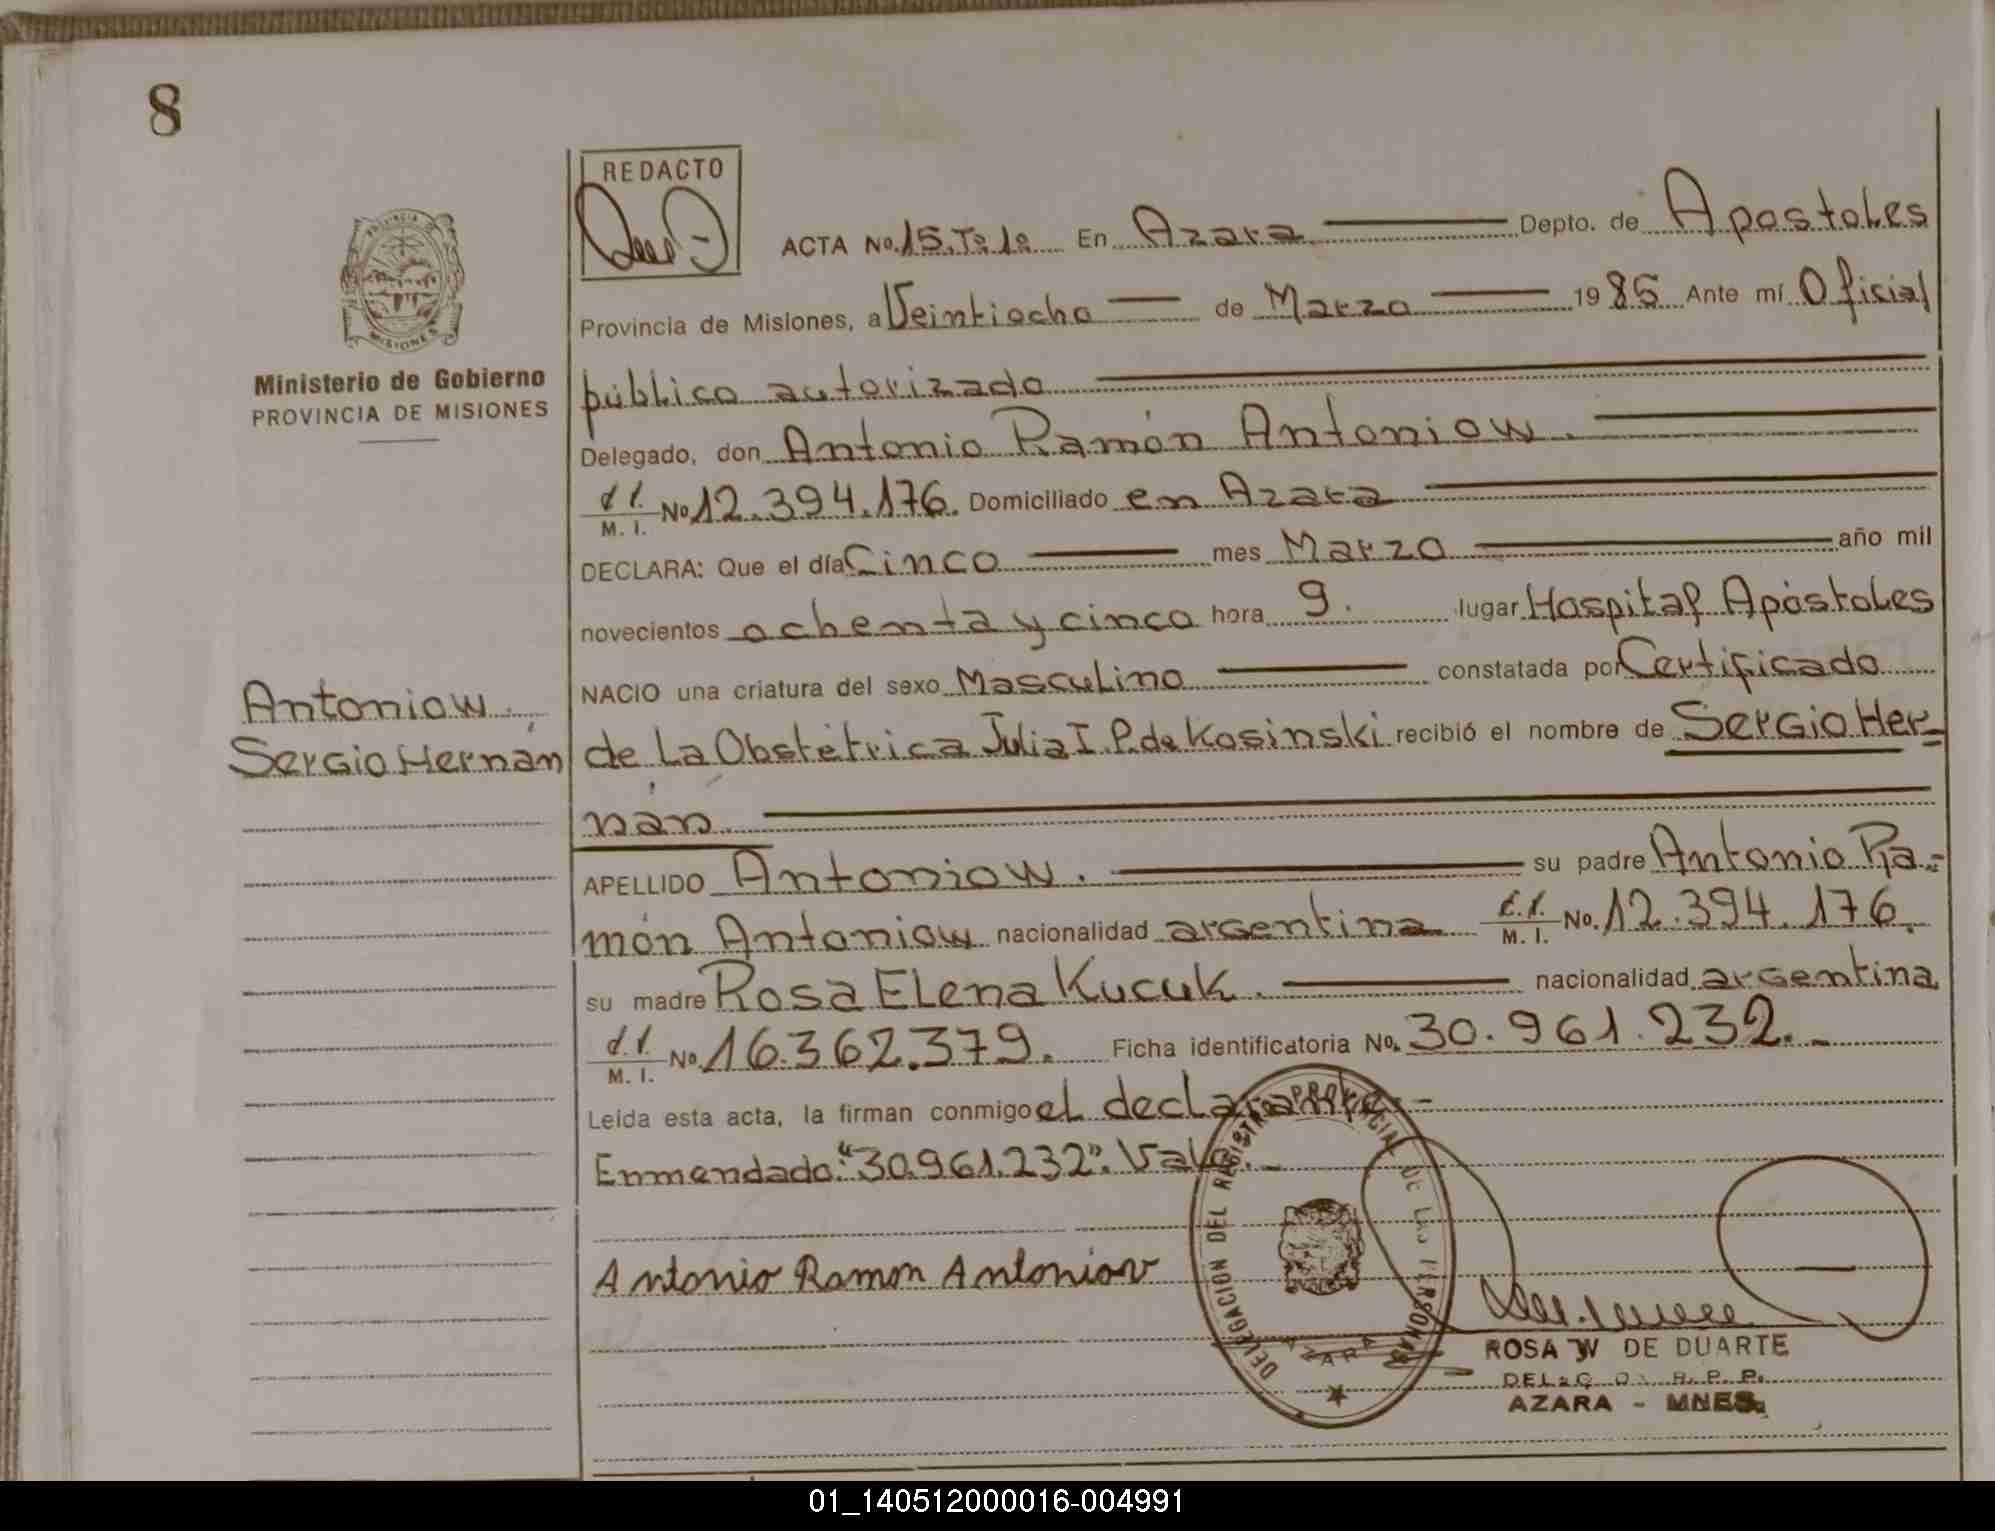 8
PROVINCIA DE
MISIONES
Ministerio de Gobierno
PROVINCIA DE MISIONES
Antoniow.
Sergio Hernán
REDACTO
ACTA No. 15. Tº 1º En Azara Depto. de Apostoles
Provincia de Misiones, a Veintiocho de Marzo 1985 Ante mí Oficial
público autorizado
Delegado, don Antonio Ramón Antoniow.
d.i. M. I. No 12.394.176. Domiciliado en Azara
DECLARA: Que el día Cinco mes Marzo año mil
novecientos ochenta y cinco hora 9. lugar Hospital Apóstoles
NACIO una criatura del sexo Masculino constatada por Certificado
de la Obstétrica Julia I. P. de Kosinski recibió el nombre de Sergio Her=
nán
APELLIDO Antoniow. su padre Antonio Ra=
món Antoniow nacionalidad argentina d.i. M. I. No. 12.394.176.
su madre Rosa Elena Kucuk. nacionalidad argentina
d.i. M. I. No. 16.362.379. Ficha identificatoria No. 30.961.232.-
Leída esta acta, la firman conmigo el declarante.-
Enmendado: "30.961.232". Vale.-
Antonio Ramon Antoniow
DELEGACION DEL REGISTRO PROVINCIAL DE LAS PERSONAS
AZARA
ROSA W DE DUARTE
R. P. P.
AZARA - MNES.
01_140512000016-004991